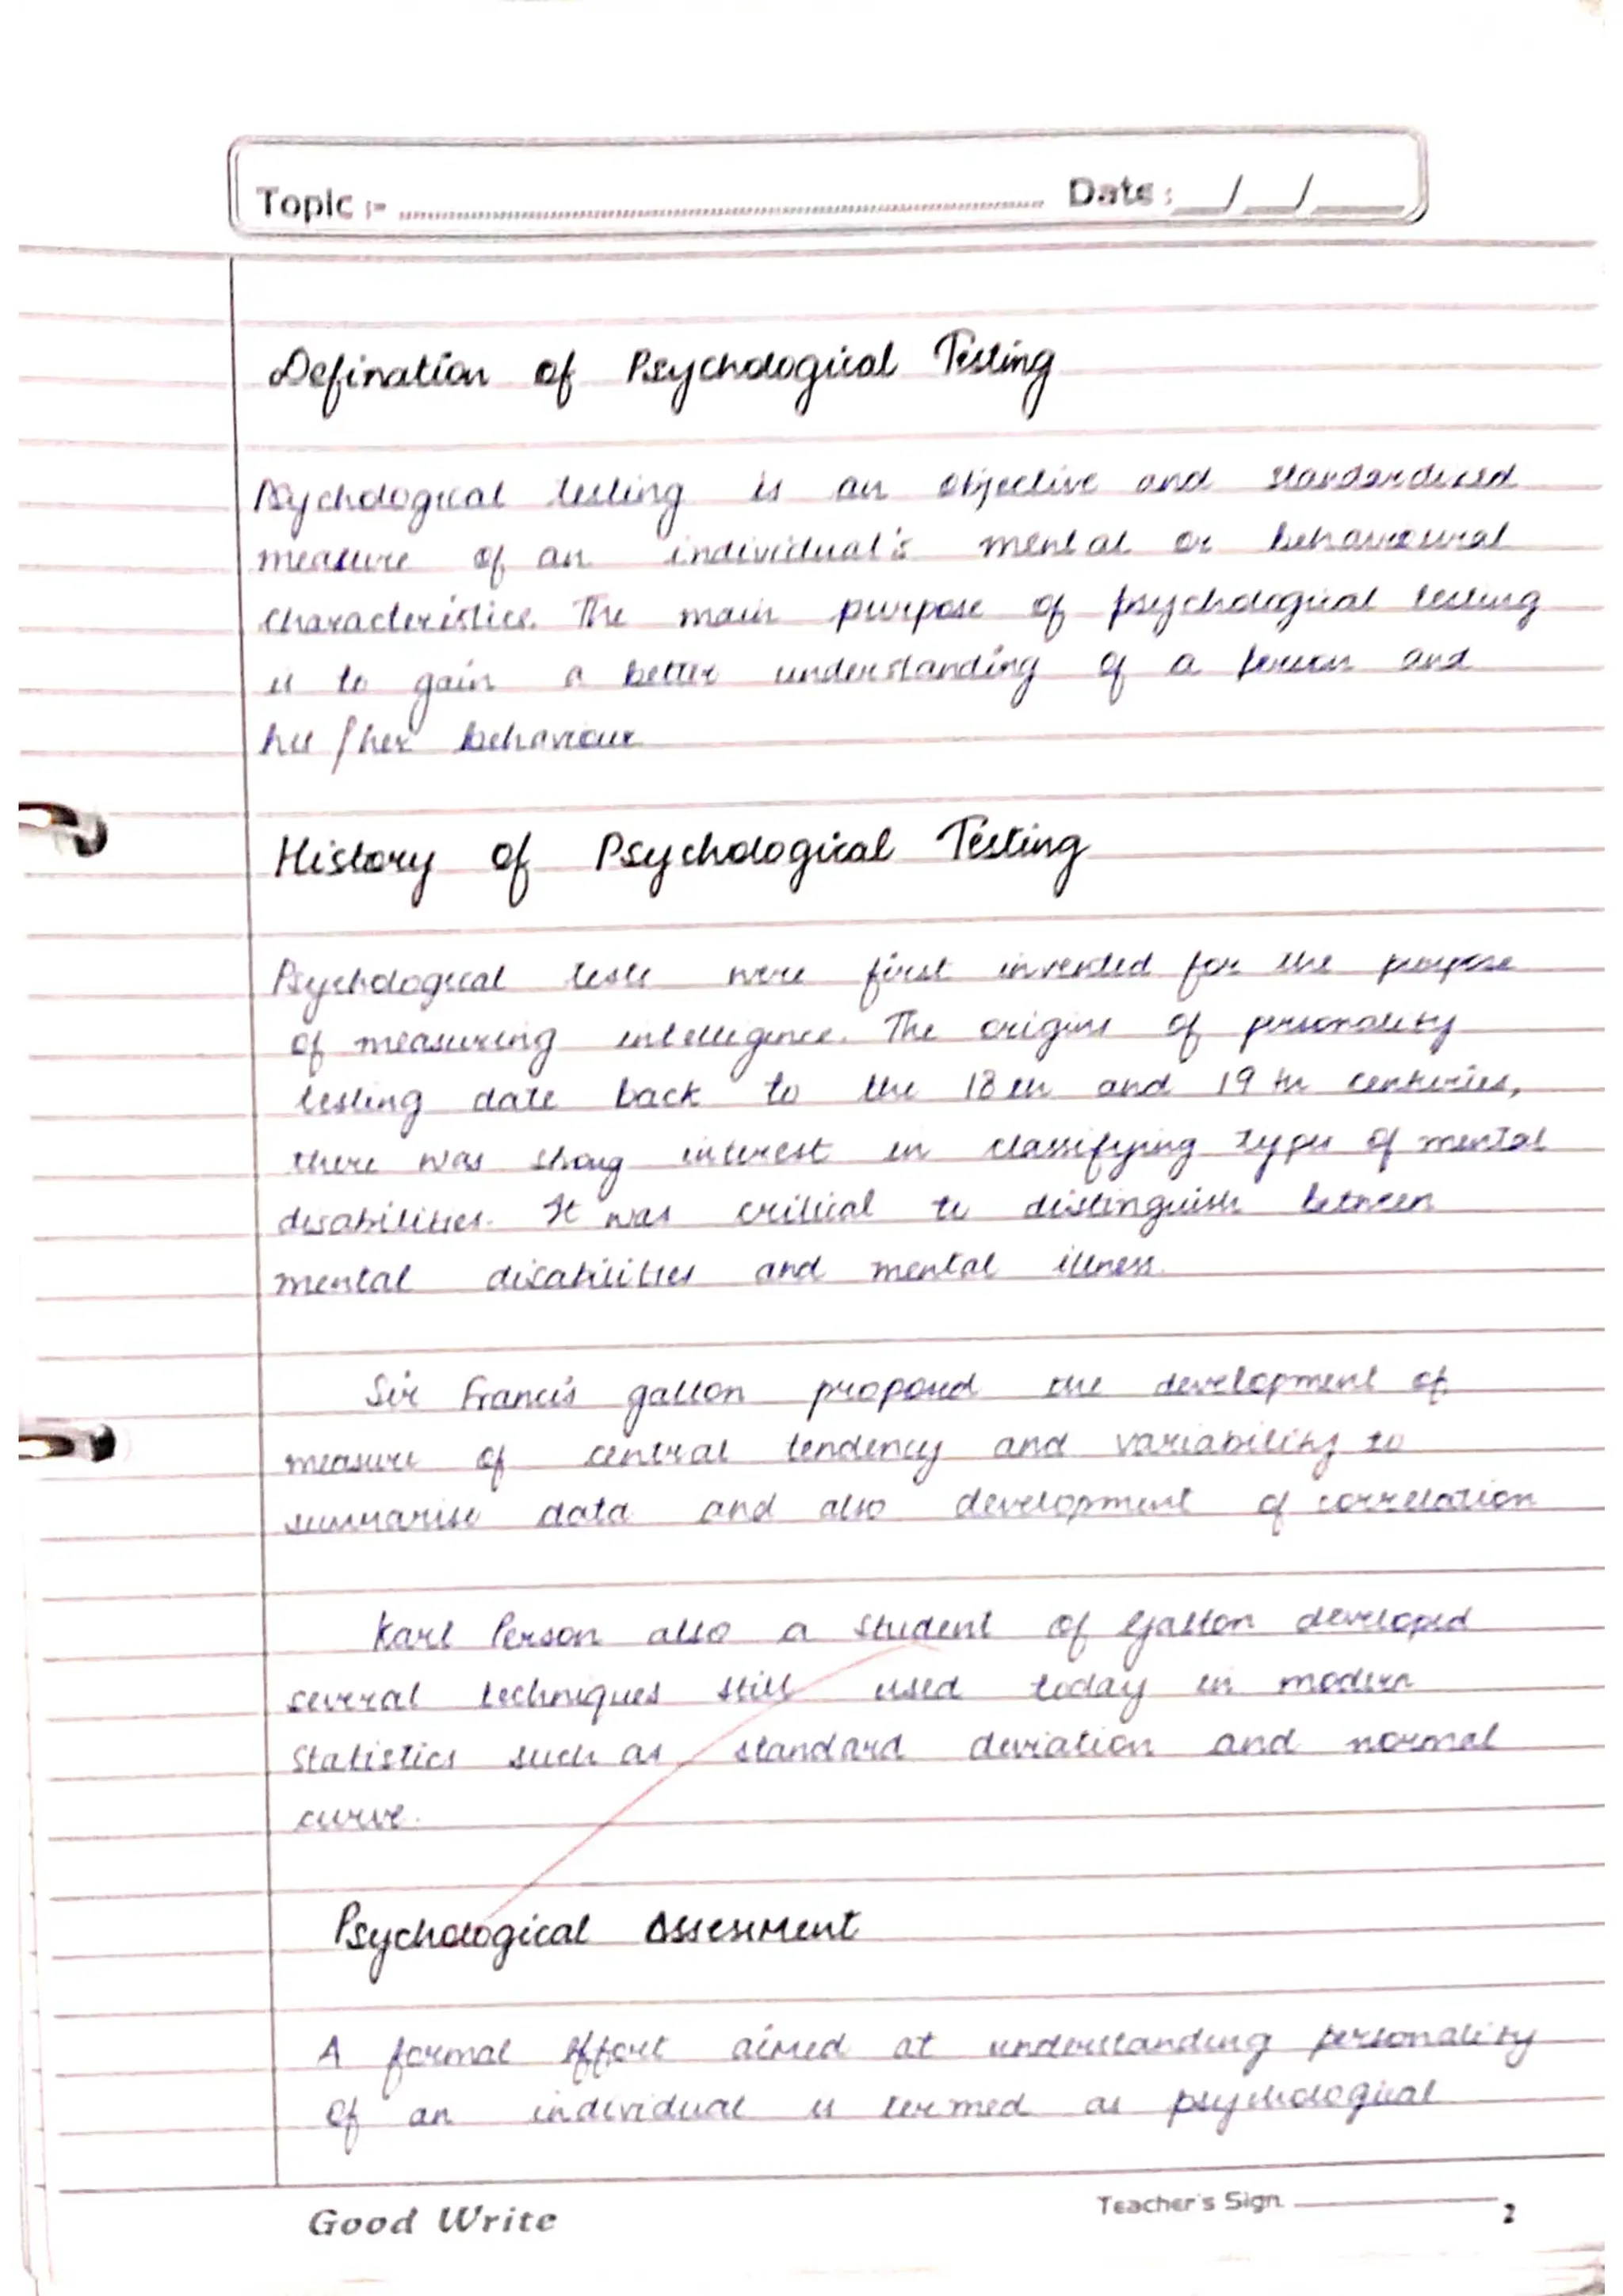 Topic :- Date : __/__/____
Defination of Psychological Testing
Psychological testing is an objective and standardized
measure of an individual's mental or behavioural
characteristics. The main purpose of psychological testing
is to gain a better understanding of a person and
his / her behaviour
History of Psychological Testing
Psychological tests were first invented for the purpose
of measuring intelligence. The origins of personality
testing date back to the 18th and 19th centuries,
there was strong interest in classifying types of mental
disabilities. It was critical to distinguish between
mental disabilities and mental illness.
Sir Francis galton proposed the development of
measure of central tendency and variability to
summarise data and also development of correlation
Karl Person also a student of Galton developed
several techniques still used today in modern
Statistics such as standard deviation and normal
curve.
Psychological Assessment
A formal effort aimed at understanding personality
of an individual is termed as psychological
Good Write Teacher's Sign. 2